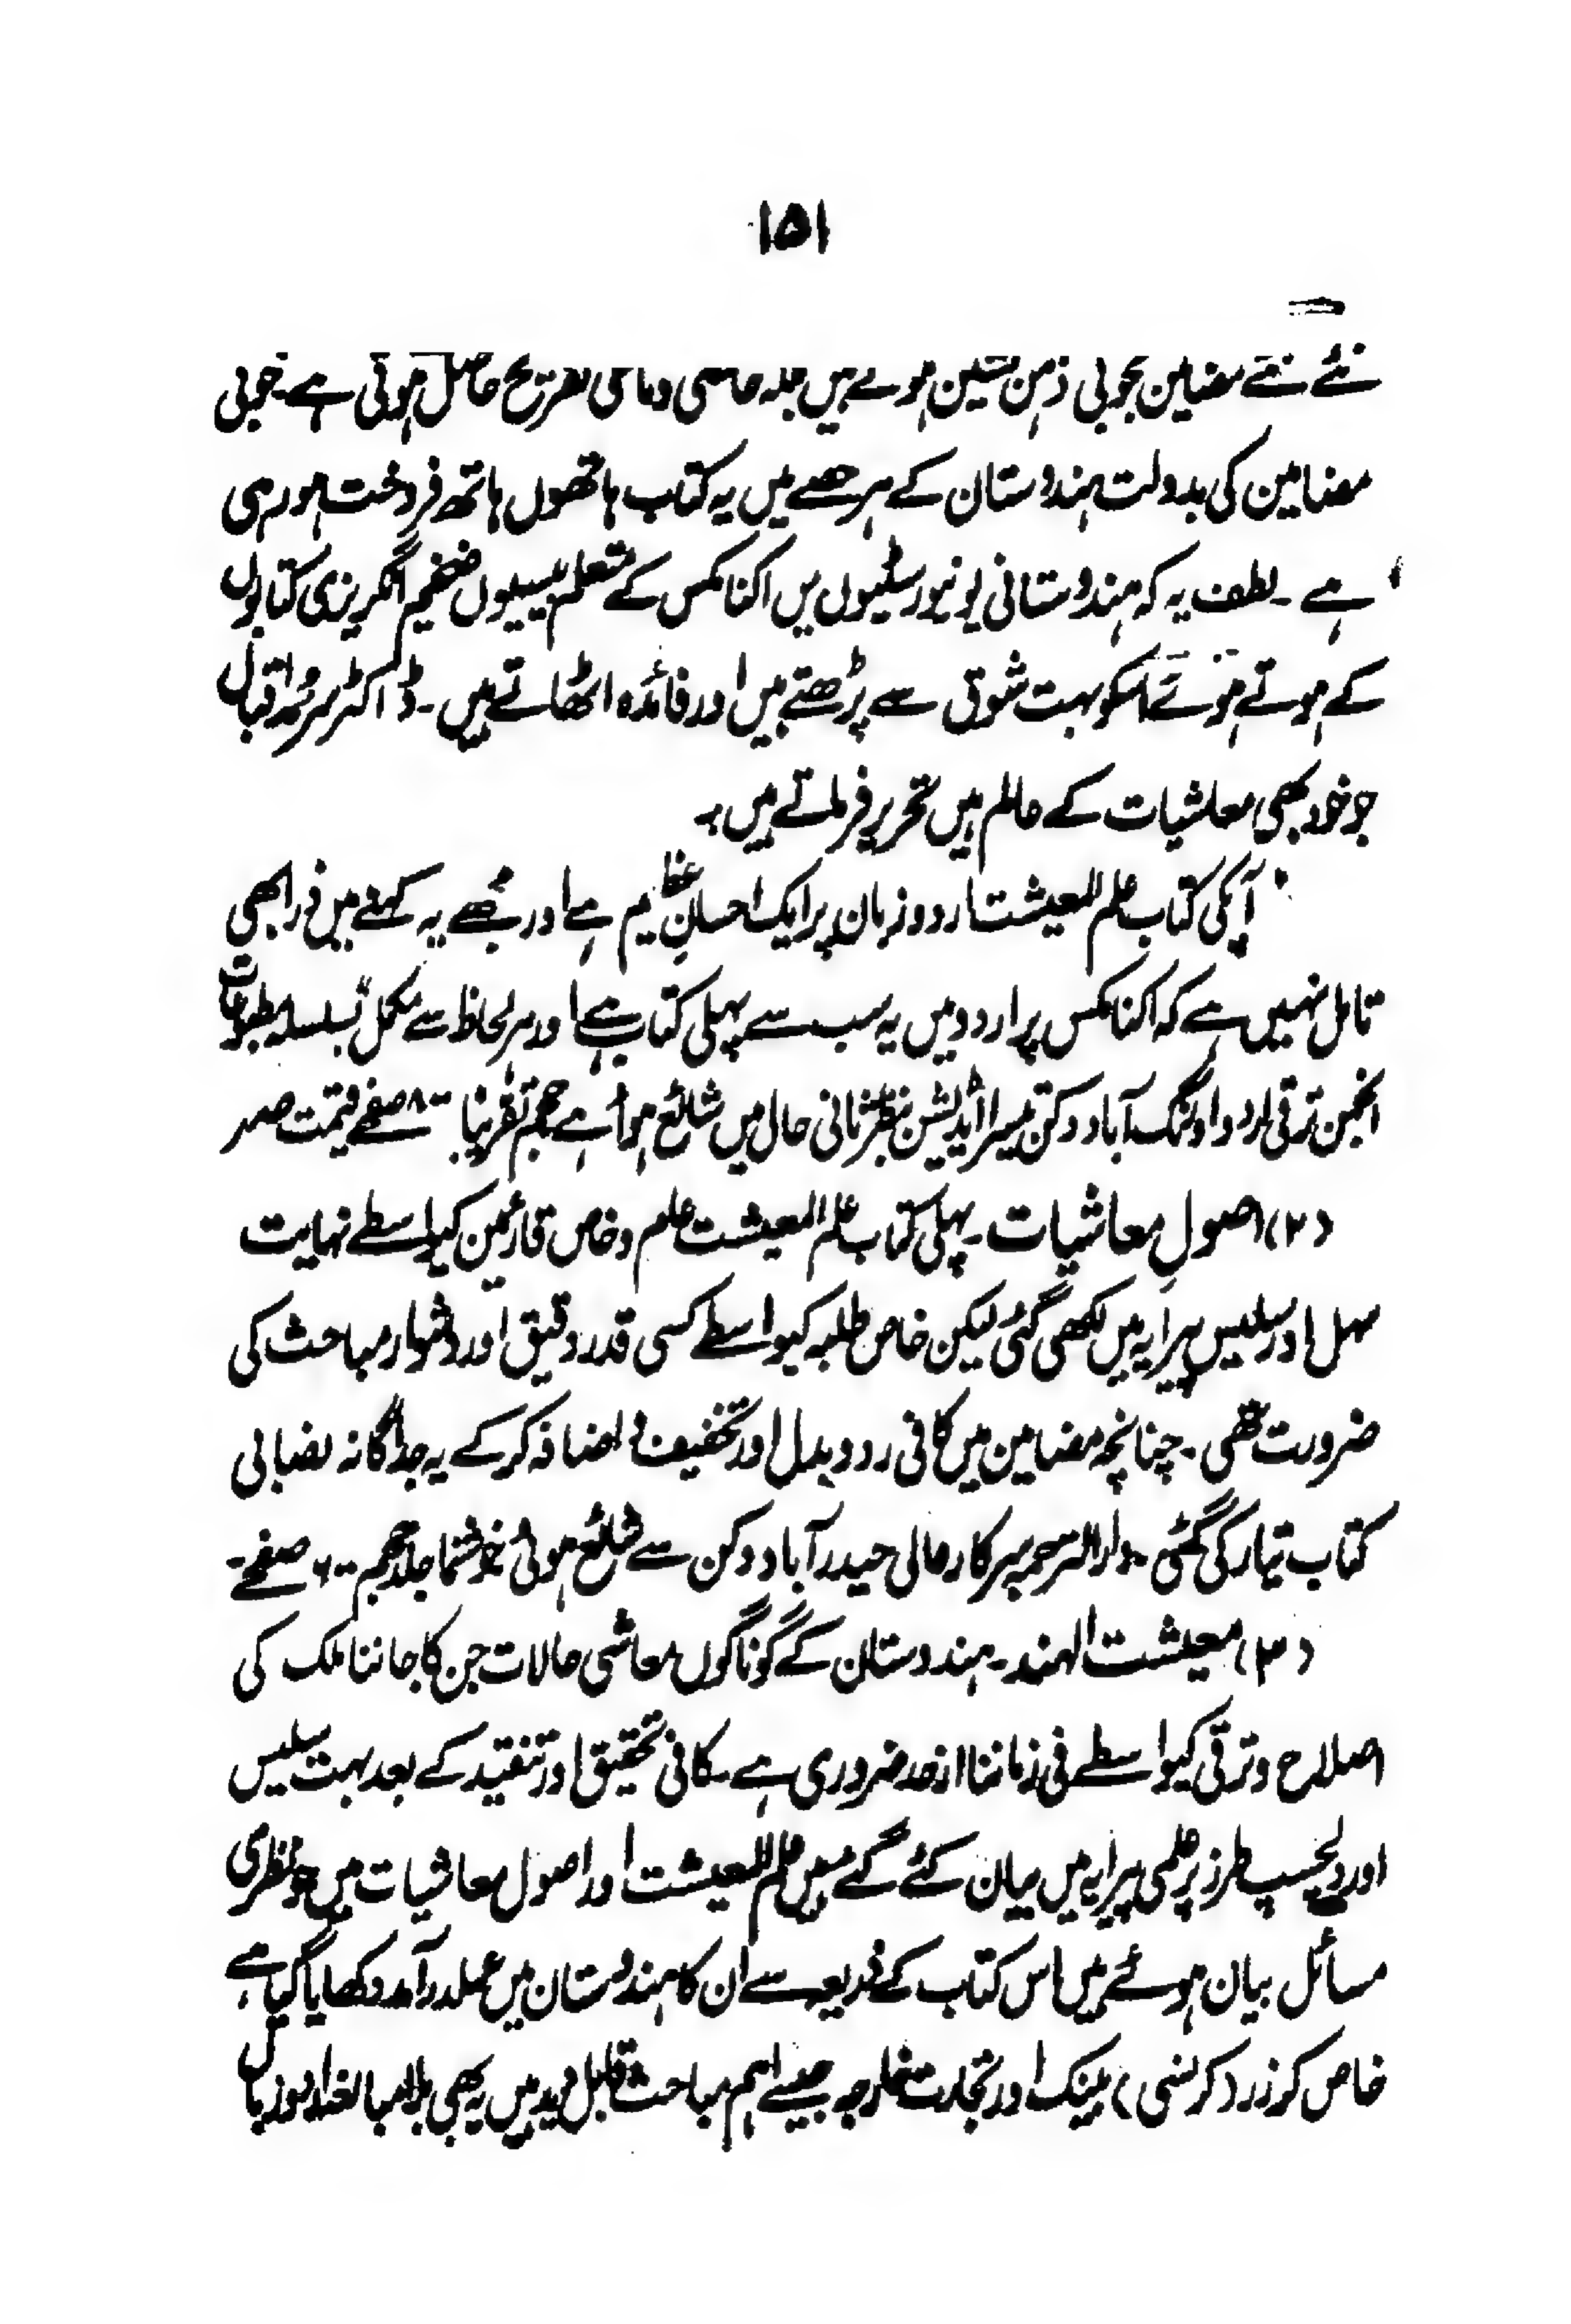 ۱۵۱
نئے نئے مضامین بخوبی ذہن نشین ہوتے ہیں بلکہ خاصی دماغی تفریح حاصل ہوتی ہے۔ خوبی
مضامین کی بدولت ہندوستان کے ہر حصے میں یہ کتاب ہاتھوں ہاتھ فروخت ہو رہی
ہے ۔ لطف یہ کہ ہندوستانی یونیورسٹیوں میں اکنامکس کے متعلم بیسیوں ضخیم انگریزی کتابوں
کے ہوتے ہوئے اسکو بہت شوق سے پڑھتے ہیں اور فائدہ اٹھاتے ہیں ۔ ڈاکٹر سر محمد اقبال
جو خود بھی معاشیات کے عالم ہیں تحریر فرماتے ہیں :۔
آپکی کتاب علم المعیشت اردو زبان پر ایک احسان عظیم ہے اور مجھے یہ کہنے میں ذرا بھی
تامل نہیں ہے کہ اکنامکس پر اردو میں یہ سب سے پہلی کتاب ہے اور ہر لحاظ سے مکمل" بسلسلہ مطبوعات
انجمن ترقی اردو اورنگ آباد دکن تیسرا اڈیشن بنظر ثانی حال میں شائع ہوا ہے حجم تقریباً ۸۰۰ صفحے قیمت صہ
(۲) اصولِ معاشیات ۔ پہلی کتاب علم المعیشت علم و خاص قارئین کیواسطے نہایت
سہل اور سلیس پیرایہ میں لکھی گئی لیکن خاص طلبہ کیواسطے کسی قدر دقیق اور دشوار مباحث کی
ضرورت تھی ۔ چنانچہ مضامین میں کافی رد و بدل اور تخفیف و اضافہ کرکے یہ جداگانہ نصابی
کتاب تیار کی گئی ۔ دارالترجمہ سرکار عالی حیدرآباد دکن سے شائع ہوئی خوشنما جلد حجم ۶۰۰ صفحے ۔
(۳) معیشت الہند ۔ ہندوستان کے گوناگوں معاشی حالات جن کا جاننا ملک کی
اصلاح و ترقی کیواسطے فی زماننا ازحد ضروری ہے ۔ کافی تحقیق اور تنقید کے بعد بہت سلیس
اور دلچسپ طرز پر علمی پیرایہ میں بیان کئے گئے ہیں علم المعیشت اور اصول معاشیات میں جو نظری
مسائل بیان ہوئے ہیں اس کتاب کے ذریعہ سے ان کا ہندوستان میں عملدرآمد دکھایا گیا ہے
خاص کر زر (کرنسی) بینک اور تجارت خارجہ جیسے اہم مباحث قابل دید ہیں یہ بھی بلا مبالغہ اردو زبان